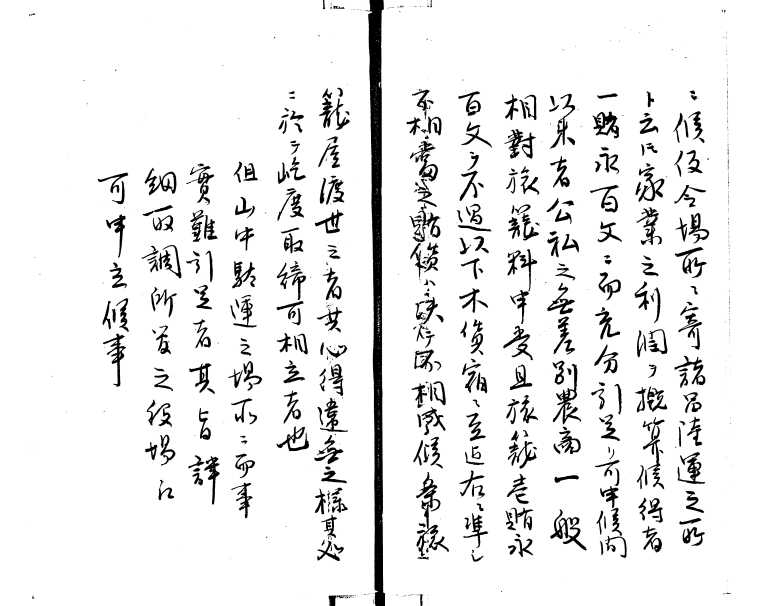 ニ候仮令場所ニ寄諸品陸運之所
ト云トモ家業之利潤ヲ概算候得者
一賄永百文ニ而充分引足リ可申候間
以来者公私之無差別農商一般
相對旅籠料申受且旅籠壱賄永
百文ヲ不過以下木賃宿ニ至迄右ニ準シ
不相當之賄錢ハ決而不相成候条旅
籠屋渡世之者共心得違無之様其処
ニ於テ屹度取締可相立者也
但山中駄運之場所ニ而事
實難引足者其旨詳
細取調所管之役場江
可申立候事